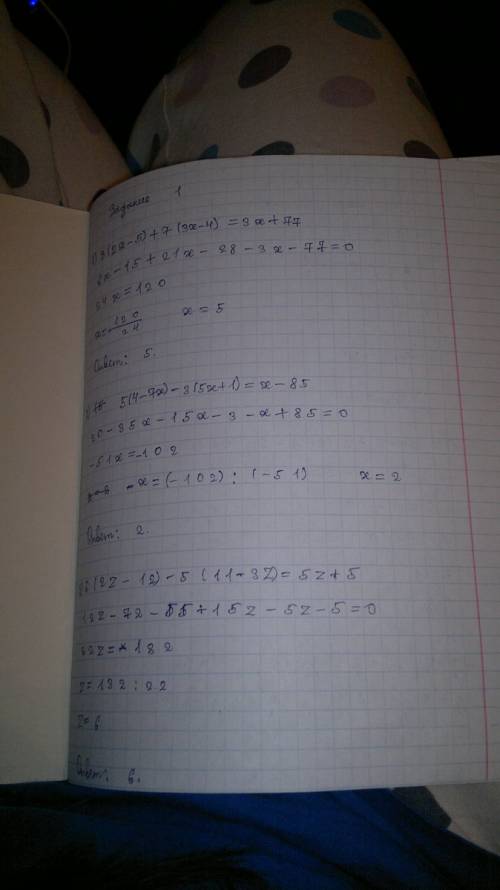 Задание 1
1) 3(2x-5)+7(3x-4)=3x+77
6x-15+21x-28-3x-77=0
24x=120
x=120/24 x=5
Ответ: 5.
5(4-7x)-3(5x+1)=x-85
20-35x-15x-3-x+85=0
-51x=-102
x=(-102):(-51) x=2
Ответ: 2.
6(2z-12)-5(11-3z)=5z+5
12z-72-55+15z-5z-5=0
22z=132
z=132:22
z=6
Ответ: 6.